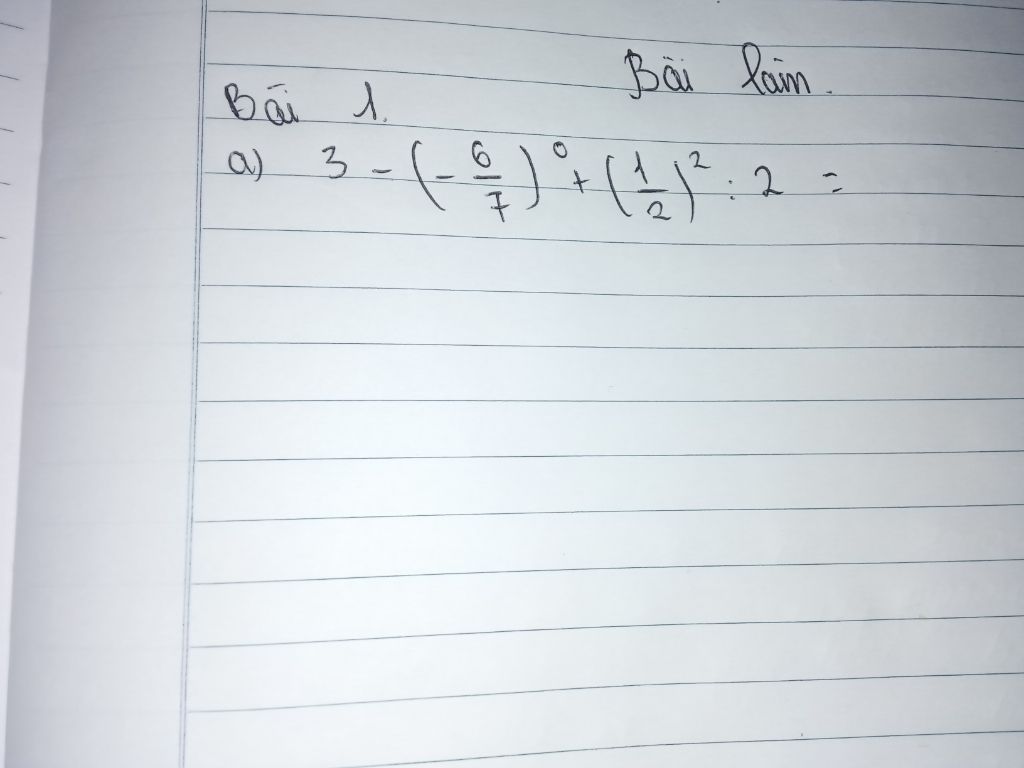 Bài làm.
Bài 1.
a) 3 - (- 6/7)⁰ + (1/2)² : 2 =